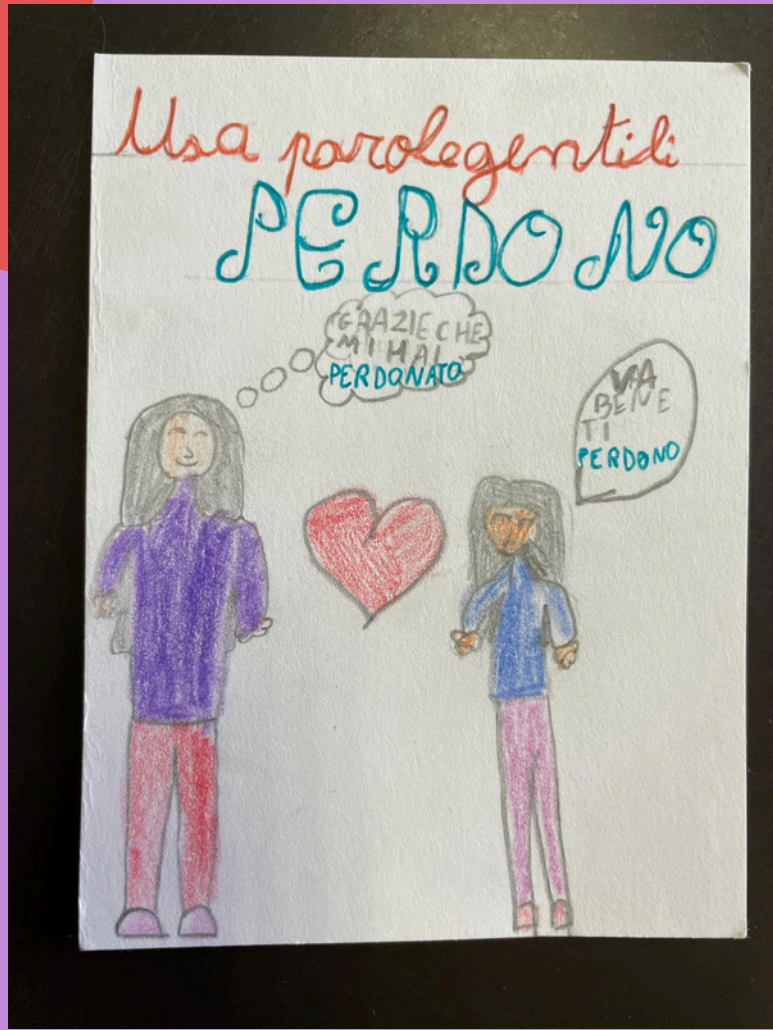 Usa parolegentili
PERDONO
GRAZIE CHE
MI HAI
PERDONATO
VA
BENE
TI
PERDONO